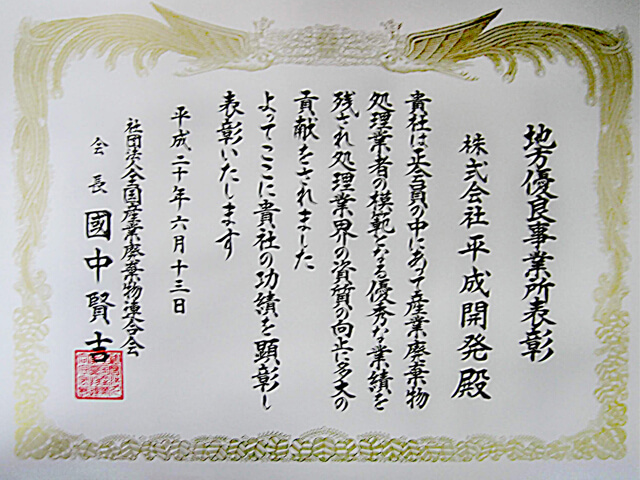 地方優良事業所表彰
株式会社平成開発殿
貴社は正会員の中にあって産業廃棄物
処理業者の模範となる優秀な業績を
残され処理業界の資質の向上に多大の
貢献をされました
よってここに貴社の功績を顕彰し
表彰いたします
平成二十年六月十三日
社団法人全国産業廃棄物連合会
会長 國中賢吉